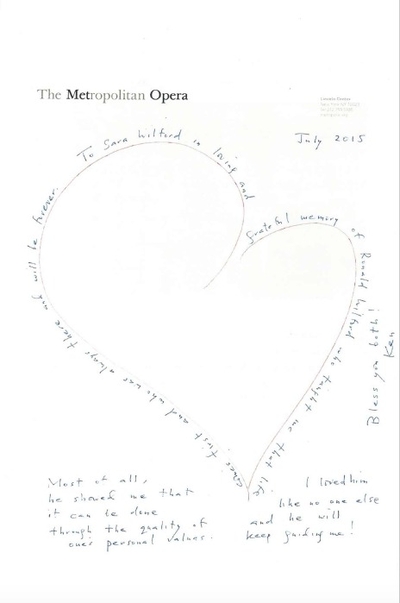 The Metropolitan Opera
Lincoln Center
July 2015
To Sara Wilford in loving and
grateful memory of Ronald Wilford who taught me that life
comes first and who was always there and will be forever.
Bless you both!
Ken
Most of all,
he showed me that
it can be done
through the quality of
one's personal values.
I loved him
like no one else
and he will
keep guiding me!